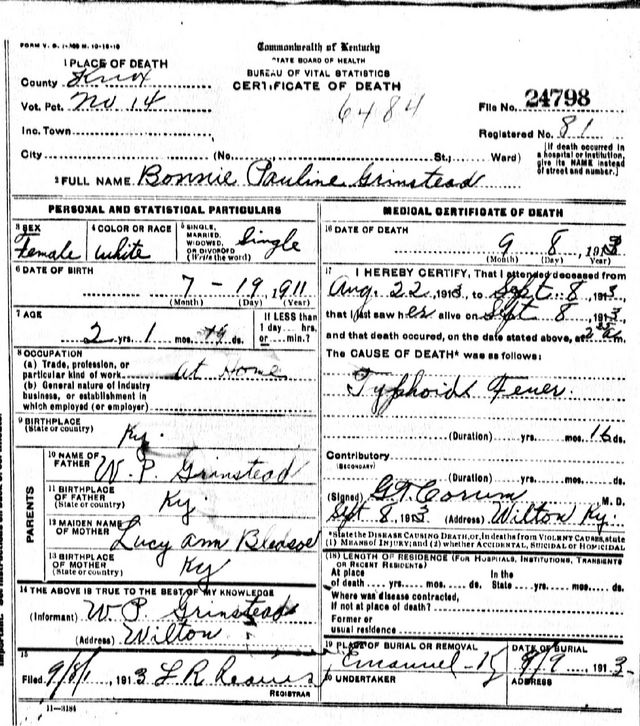 FORM V. S. 1-
Commonwealth of Kentucky
STATE BOARD OF HEALTH
BUREAU OF VITAL STATISTICS
CERTIFICATE OF DEATH
1 PLACE OF DEATH
County Knox
Vot. Pct. No 14
6484
File No. 24798
Inc. Town
Registered No. 81
City (No. St.; Ward)
(If death occurred in a hospital or institution, give its NAME instead of street and number.)
2 FULL NAME Bonnie Pauline Grinstead
PERSONAL AND STATISTICAL PARTICULARS
3 SEX Female
4 COLOR OR RACE White
5 SINGLE, MARRIED, WIDOWED, OR DIVORCED (Write the word) Single
6 DATE OF BIRTH
7 - 19, 1911
(Month) (Day) (Year)
7 AGE
2 yrs. 1 mos. 19 ds.
If LESS than 1 day.... hrs. or.... min.?
8 OCCUPATION
(a) Trade, profession, or particular kind of work At Home
(b) General nature of industry business, or establishment in which employed (or employer)
9 BIRTHPLACE (State or country) Ky.
PARENTS
10 NAME OF FATHER W. P. Grinstead
11 BIRTHPLACE OF FATHER (State or country) Ky.
12 MAIDEN NAME OF MOTHER Lucy Ann Bledsoe
13 BIRTHPLACE OF MOTHER (State or country) Ky
14 THE ABOVE IS TRUE TO THE BEST OF MY KNOWLEDGE
(Informant) W. P. Grinstead
(Address) Wilton
15
Filed 9/8/, 1913 L R
REGISTRAR
11-3184
MEDICAL CERTIFICATE OF DEATH
16 DATE OF DEATH
9 8, 1913
(Month) (Day) (Year)
17 I HEREBY CERTIFY, That I attended deceased from
Aug. 22, 1913, to Sept. 8, 1913,
that I last saw her alive on Sept 8, 1913,
and that death occurred, on the date stated above, at m.
The CAUSE OF DEATH* was as follows:
Typhoid Fever.
(Duration) yrs. mos. 16 ds.
Contributory
(SECONDARY)
(Duration) yrs. mos. ds.
(Signed) M. D.
Sept 8, 1913 (Address) Wilton Ky.
*State the DISEASE CAUSING DEATH, or, in deaths from VIOLENT CAUSES, state
(1) MEANS OF INJURY; and (2) whether ACCIDENTAL, SUICIDAL OR HOMICIDAL
(18) LENGTH OF RESIDENCE (FOR HOSPITALS, INSTITUTIONS, TRANSIENTS OR RECENT RESIDENTS)
At place of death.... yrs. mos. ds. In the State.... yrs. mos. ds.
Where was disease contracted, If not at place of death?
Former or usual residence
19 PLACE OF BURIAL OR REMOVAL Emanuel - Ky
DATE OF BURIAL 9/9, 1913
20 UNDERTAKER
ADDRESS